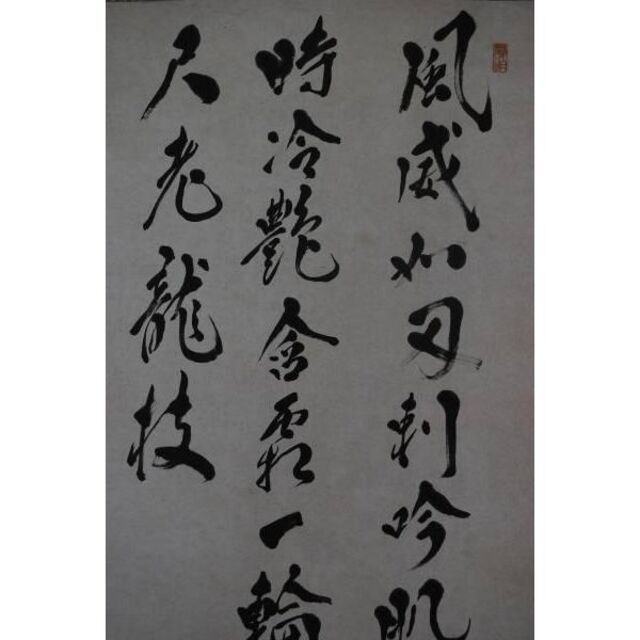 風威如刃刺吟肌
時冷艷含霜一輪
尺老龍枝